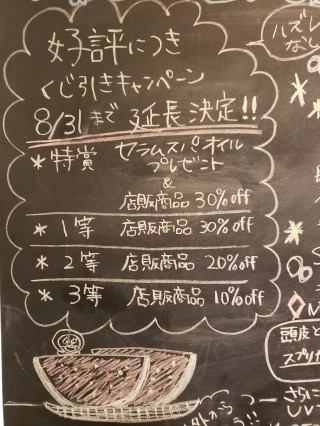 好評につき
くじ引きキャンペーン
8/31まで 延長決定!!
* 特賞 セラムスパオイル
プレゼント
&
店販商品 30%off
* 1等 店販商品 30%off
* 2等 店販商品 20%off
* 3等 店販商品 10%off
ハズレ
なし
頭皮と
さらに
外から